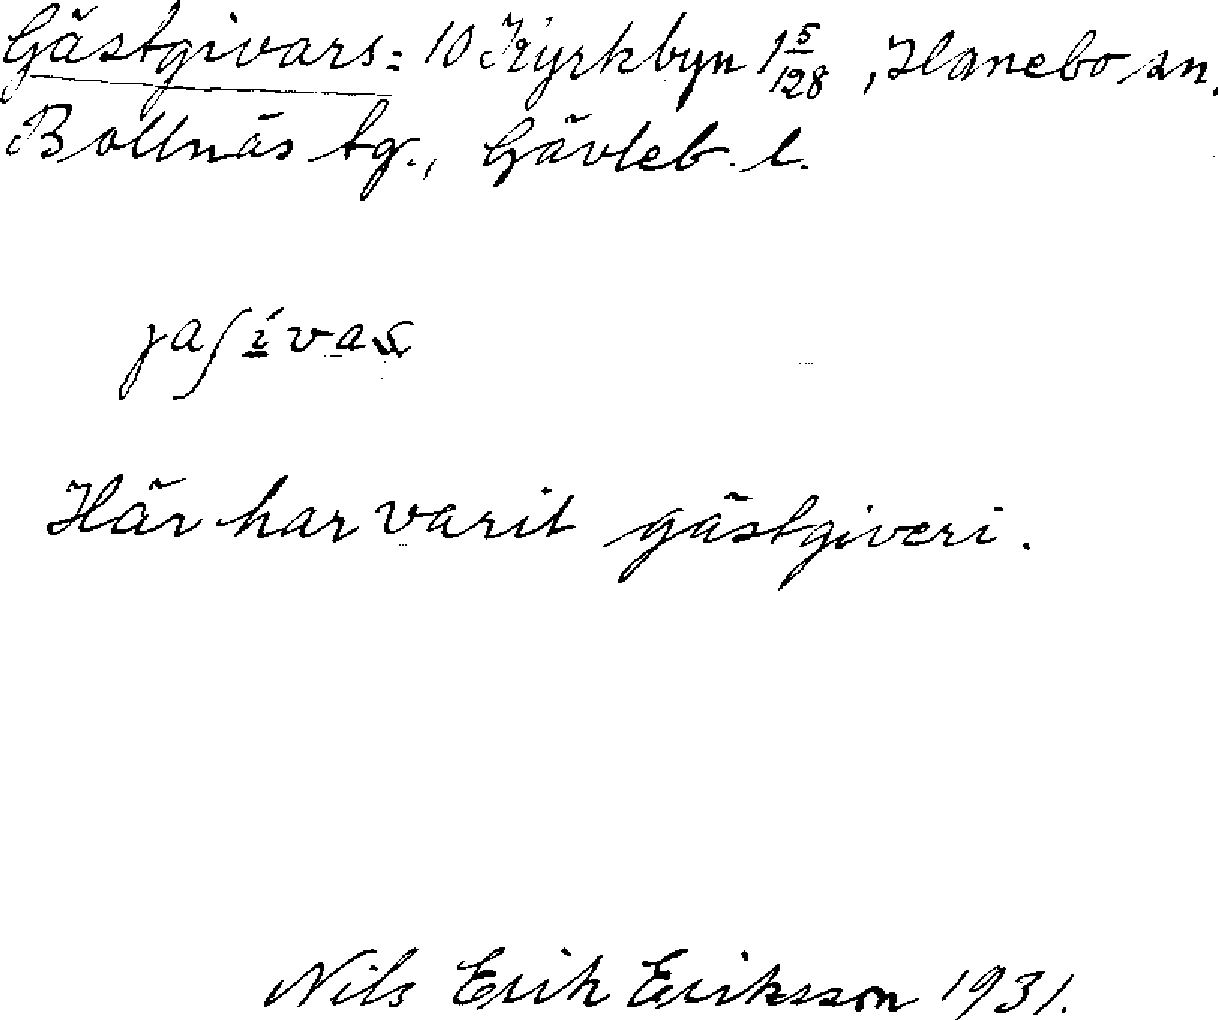 Gästgivars: 10 Kyrkbyn 1 5/128, Hanebo sn,
Bollnäs tg., Gävleb. l.
Här har varit gästgiveri.
Nils Erik Eriksson 1931.